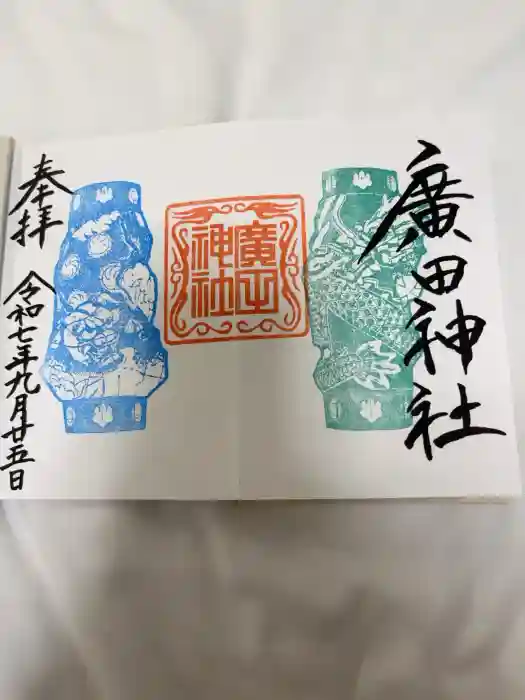 廣田神社
廣田
神社
奉拝
令和七年九月廿五日